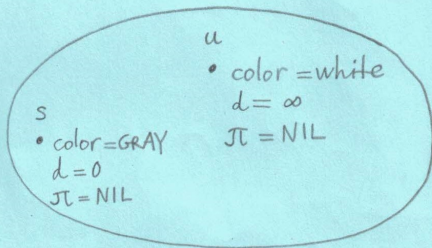 u
• color = white
d = ∞
π = NIL
s
• color = GRAY
d = 0
π = NIL